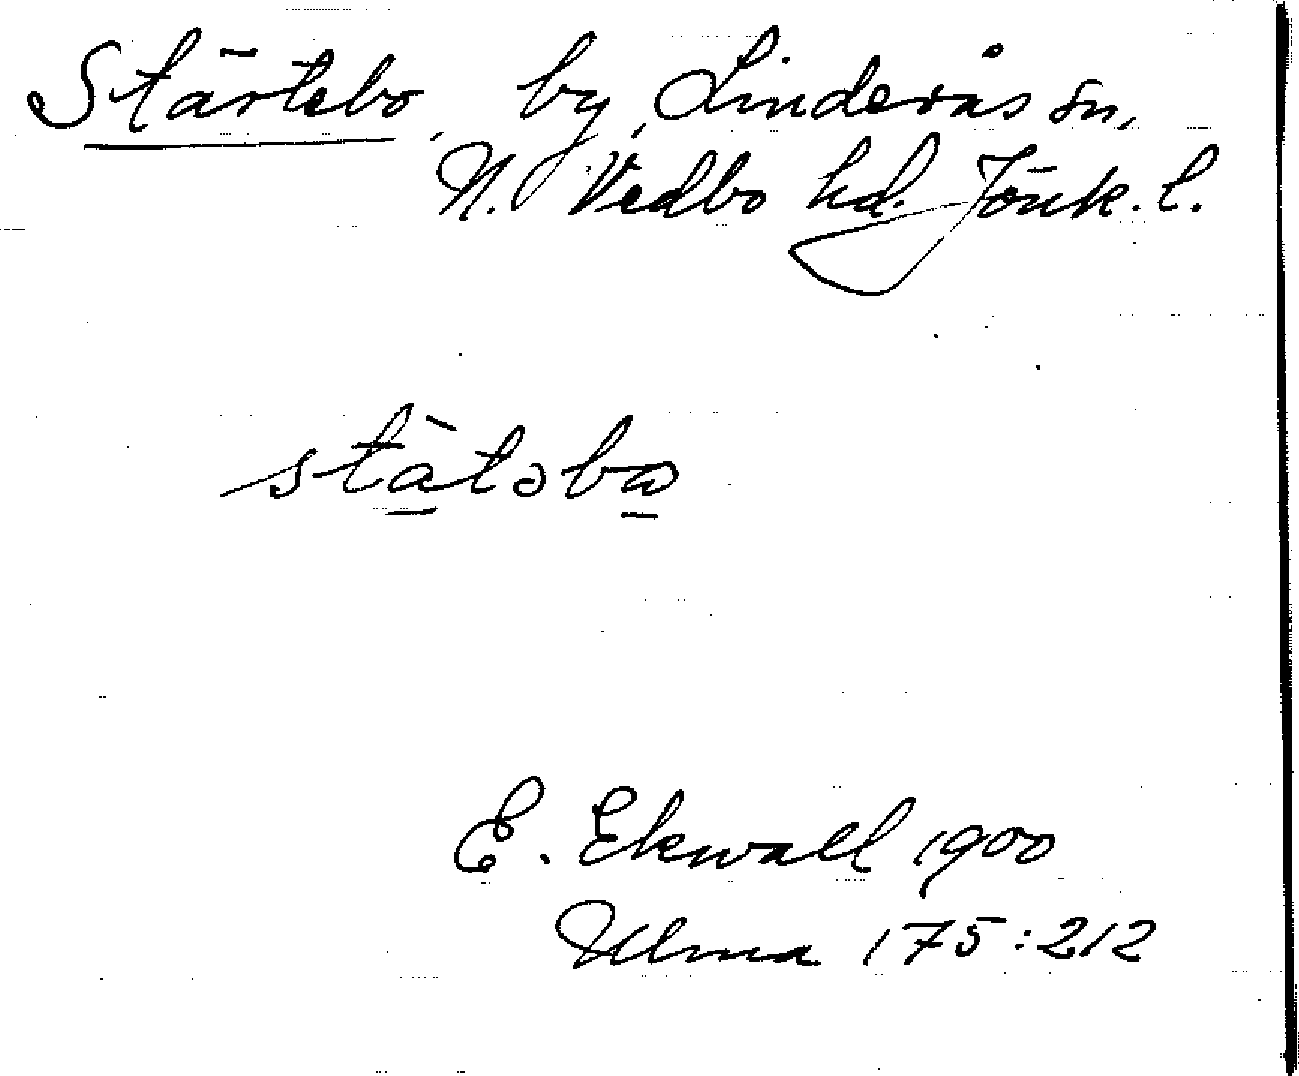 Stärtebo, by, Linderås sn,
N. Vedbo hd. Jönk. l.
E. Ekwall 1900
Ulma 175:212